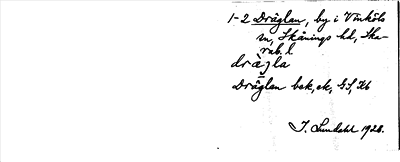 1-2 Dräglan, by i Vinköls
sn, Skånings hd, Ska-
rab. l
drägla
Dräglan bek, ek, GS, Kb
I. Lundahl 1928.